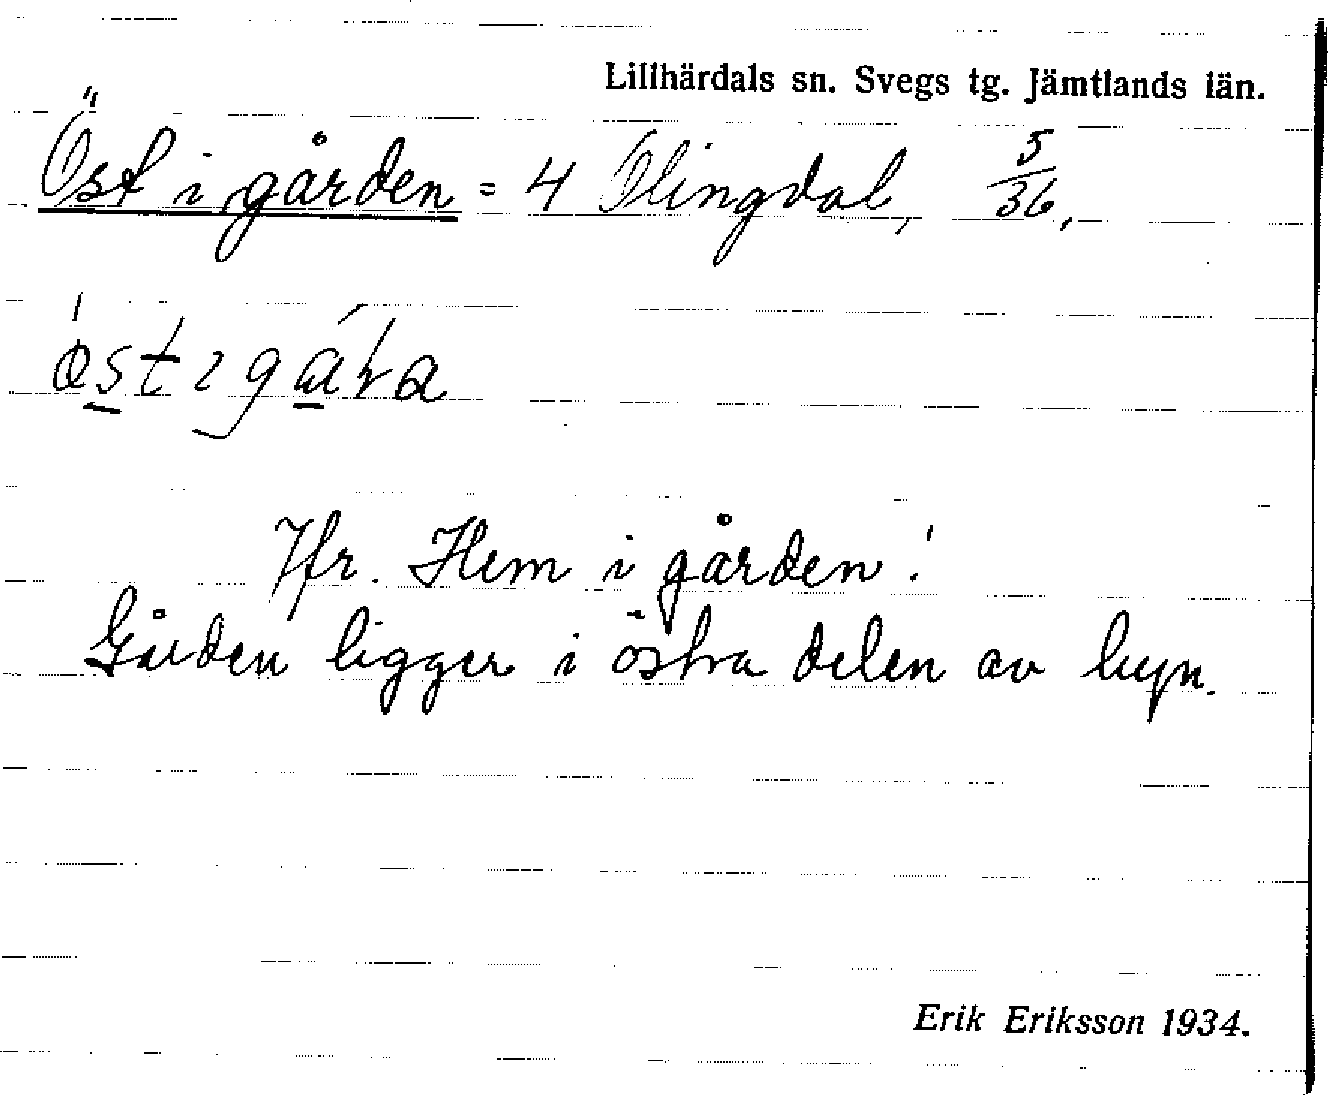 Lillhärdals sn. Svegs tg. Jämtlands län.
Öst i gården = 4 Olingdal, 5/36,
Jfr. Hem i gården!
Gården ligger i östra delen av byn.
Erik Eriksson 1934.